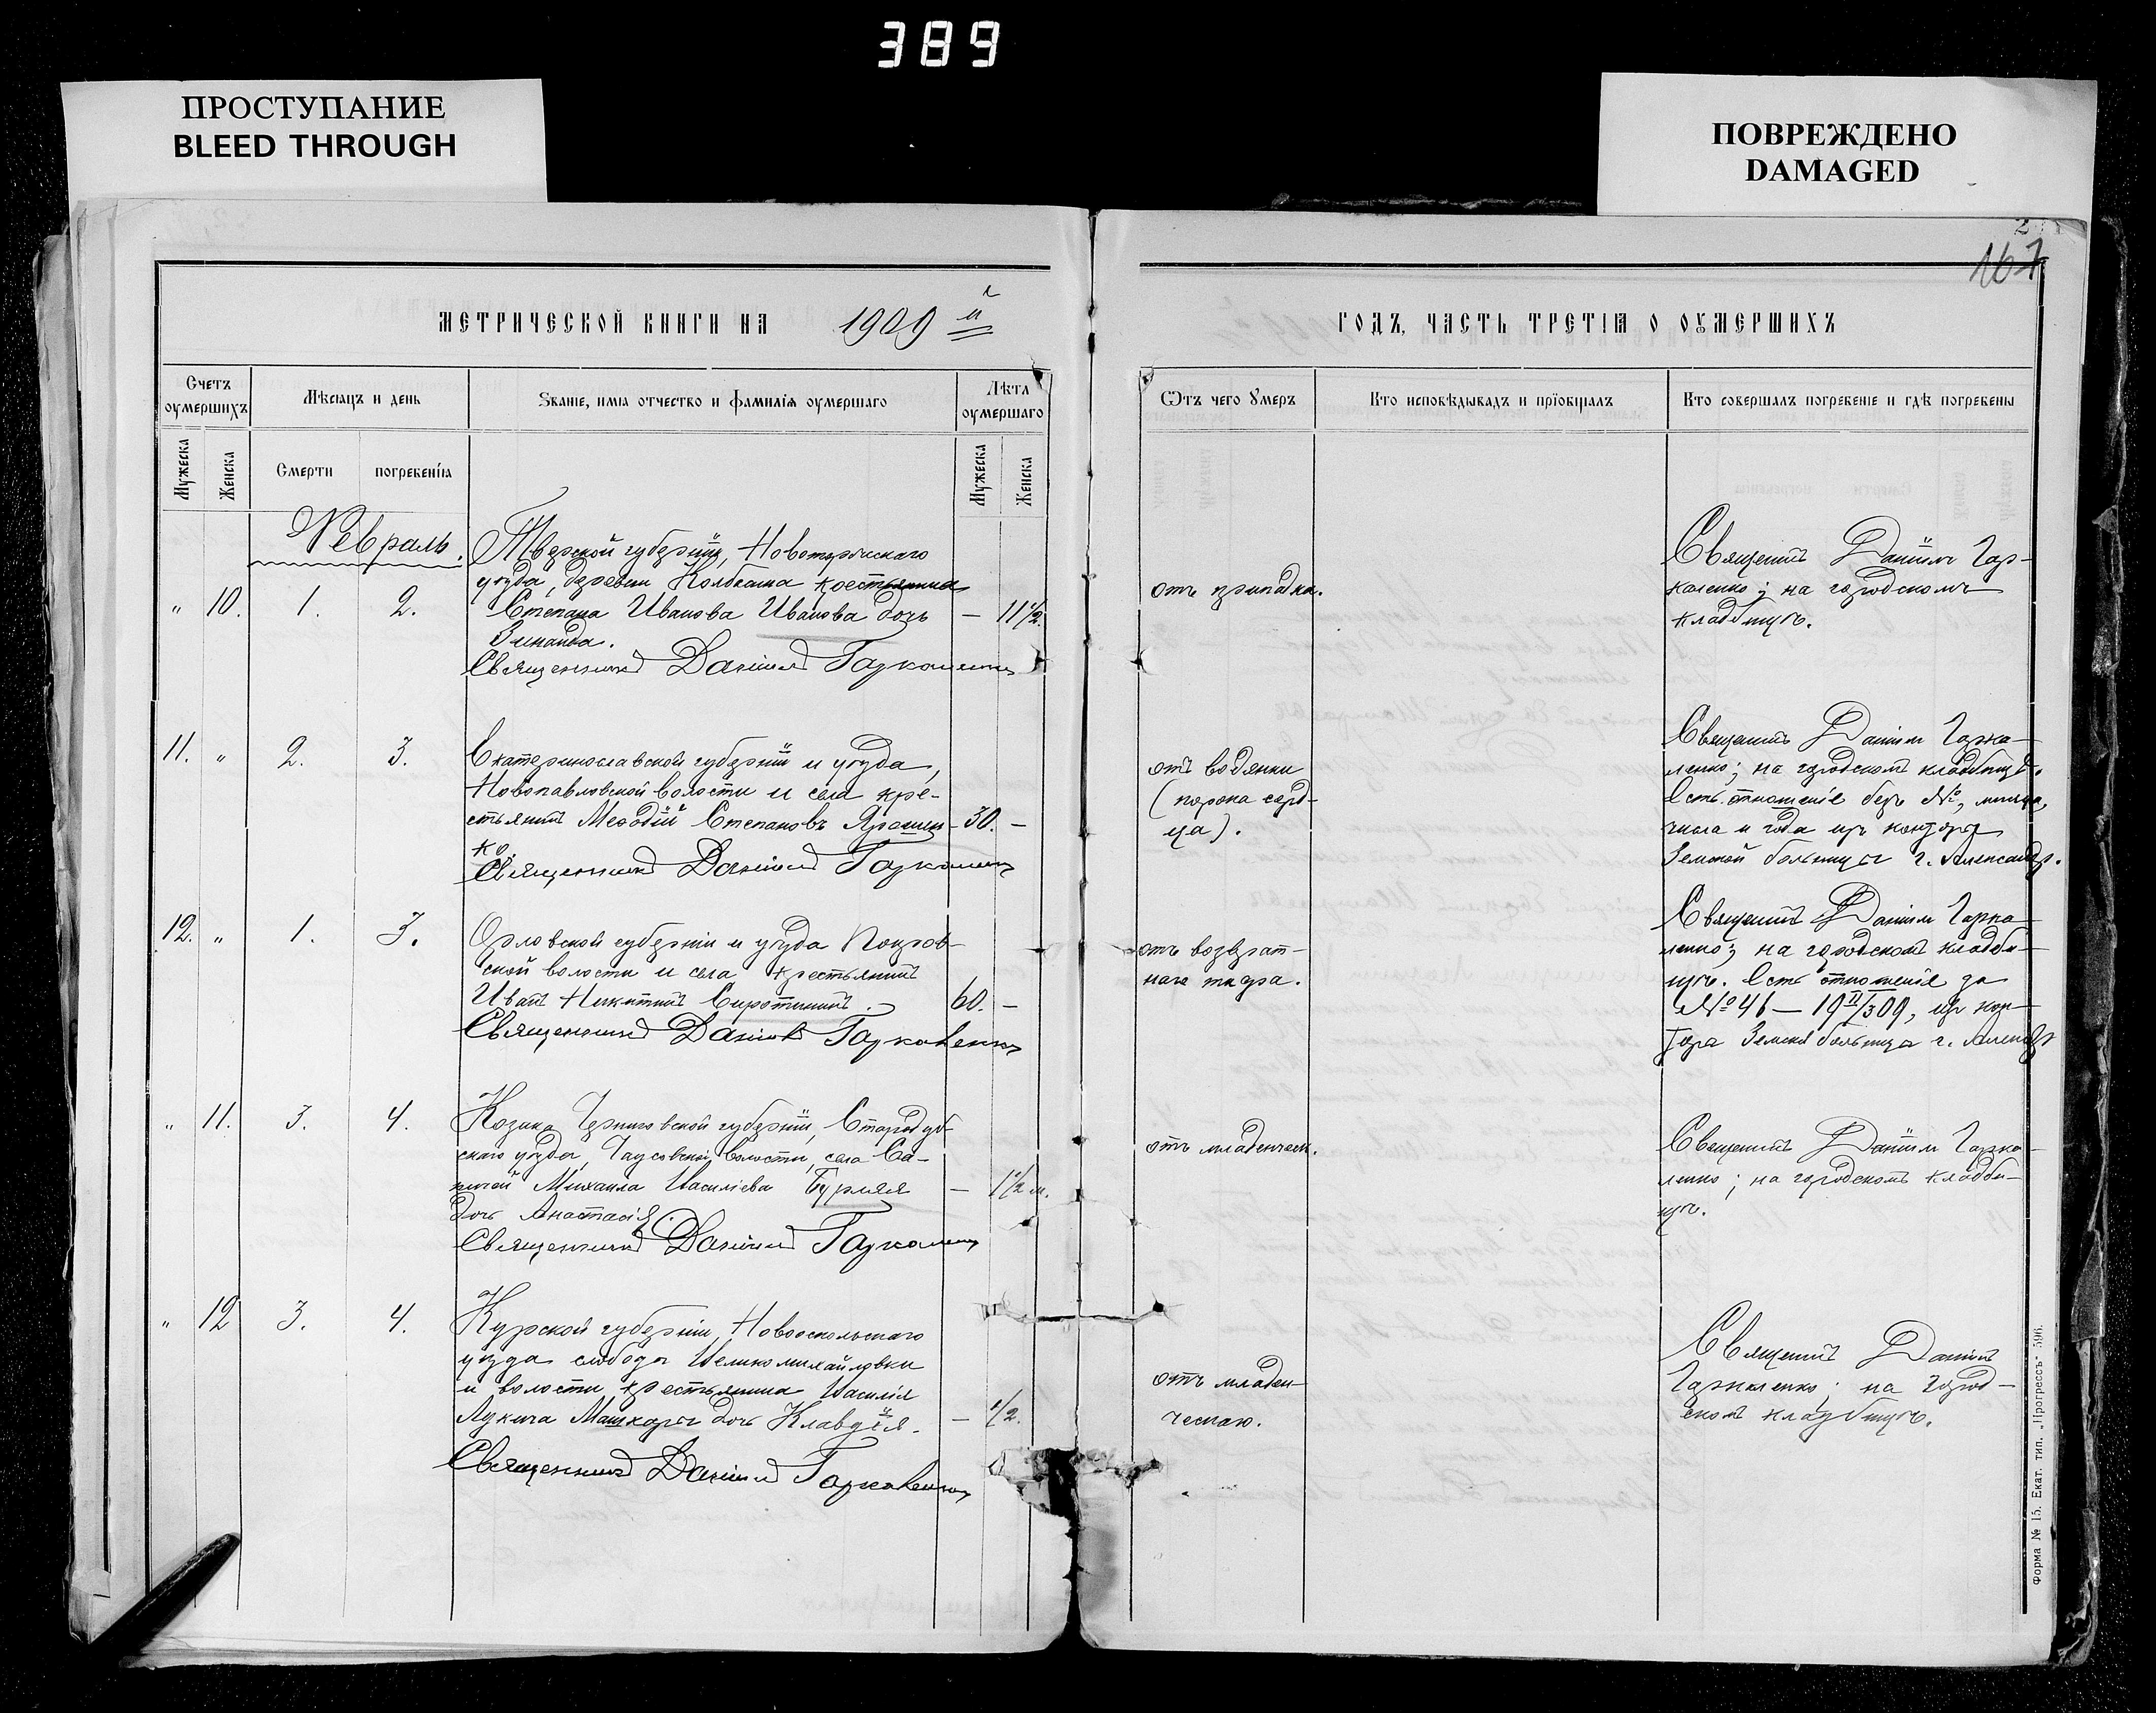 389
ПРОСТУПАНИЕ
BLEED THROUGH
ПОВРЕЖДЕНО
DAMAGED
167
МЕТРИЧЕСКОЙ КНИГИ НА 1909й
ГОДЪ, ЧАСТЬ ТРЕТІѦ О ОУМЕРШИХЪ
Счетъ оумершихъ
Мѣсяцъ и день
Званіе, имя отчество и фамилія оумершаго
Лѣта оумершаго
Ѿтъ чего Умеръ
Кто исповѣдывалъ и пріобщалъ
Кто совершалъ погребеніе и гдѣ погребены
Мужеска
Женска
Смерти
погребенія
Мужеска
Женска
Февраль.
„ 10. 1. 2.
Тверской губерніи, Новоторжскаго
уѣзда, деревни крестьянина
Степана Иванова Иванова дочь
— 11 1/2.
Зинаида.
Священникъ Даніилъ Гаркаленко
отъ припадка.
Священникъ Даніилъ Гар-
каленко; на городскомъ
кладбищѣ.
11. „ 2. 3.
Екатеринославской губерніи и уѣзда,
Новопавловской волости и села кре-
стьянинъ Меѳодій Степановъ Ярошен-
30. —
ко.
Священникъ Даніилъ Гаркаленко
отъ водянки
(порока серд-
ца).
Священникъ Даніилъ Гарка-
ленко; на городскомъ кладбищѣ.
Есть отношеніе безъ №, мѣсяца,
числа и года изъ конторы
Земской больницы г. Александр.
12. „ 1. 3.
Орловской губерніи и уѣзда Покров-
ской волости и села крестьянинъ
Иванъ Никитинъ Сиротининъ.
60. —
Священникъ Даніилъ Гаркаленко
отъ возврат-
наго тифа.
Священникъ Даніилъ Гарка-
ленко; на городскомъ кладби-
щѣ. Есть отношеніе за
№ 46 — 19 II/3 09, изъ кон-
торы Земской больницы г. Александр
„ 11. 3. 4.
Козака Черниговской губерніи, Стародуб-
скаго уѣзда, волости, села
Михаила Василіева Бурмая
— 1 1/2 м.
дочь Анастасія.
Священникъ Даніилъ Гаркаленко
отъ младенческ.
Священникъ Даніилъ Гарка-
ленко; на городскомъ кладби-
щѣ.
„ 12 3. 4.
Курской губерніи, Новооскольскаго
уѣзда слободы Великомихайловки
и волости крестьянина Василія
Лукича Машкары дочь Клавдія.
— 1/2.
Священникъ Даніилъ Гаркаленко
отъ младен-
ческаго.
Священникъ Даніилъ
Гаркаленко; на город-
скомъ кладбищѣ.
Форма № 15. Екат. тип. „Прогрессъ“ 596.